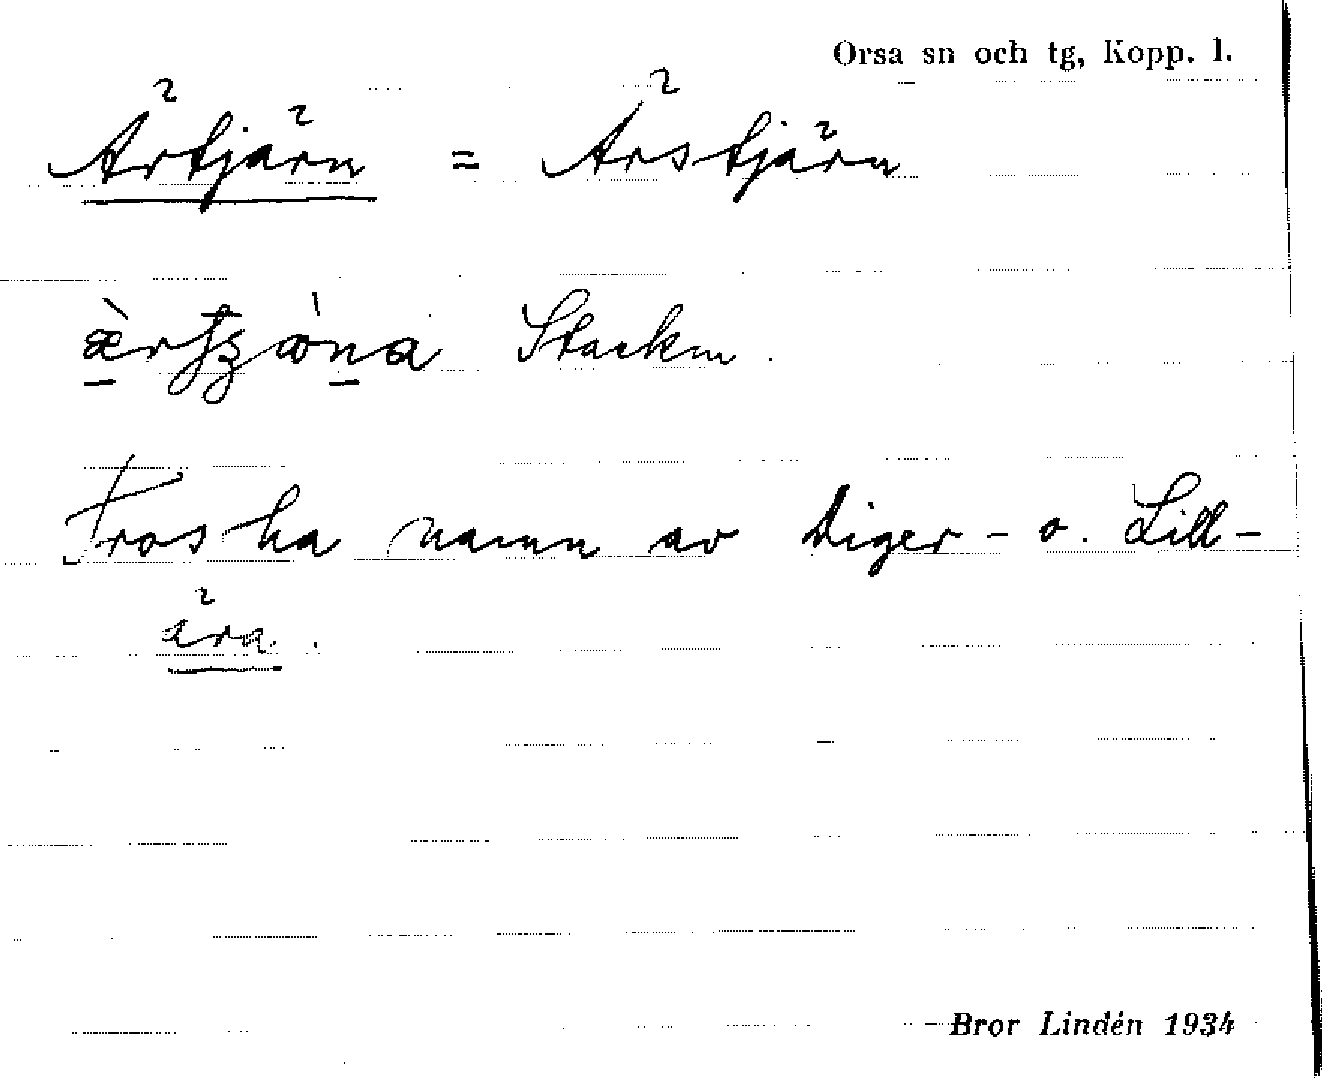 Orsa sn och tg, Kopp. l.
Ärtjärn = Ärstjärn
Stackm.
Tros ha namn av Diger- o. Lill-
ära.
Bror Lindén 1934